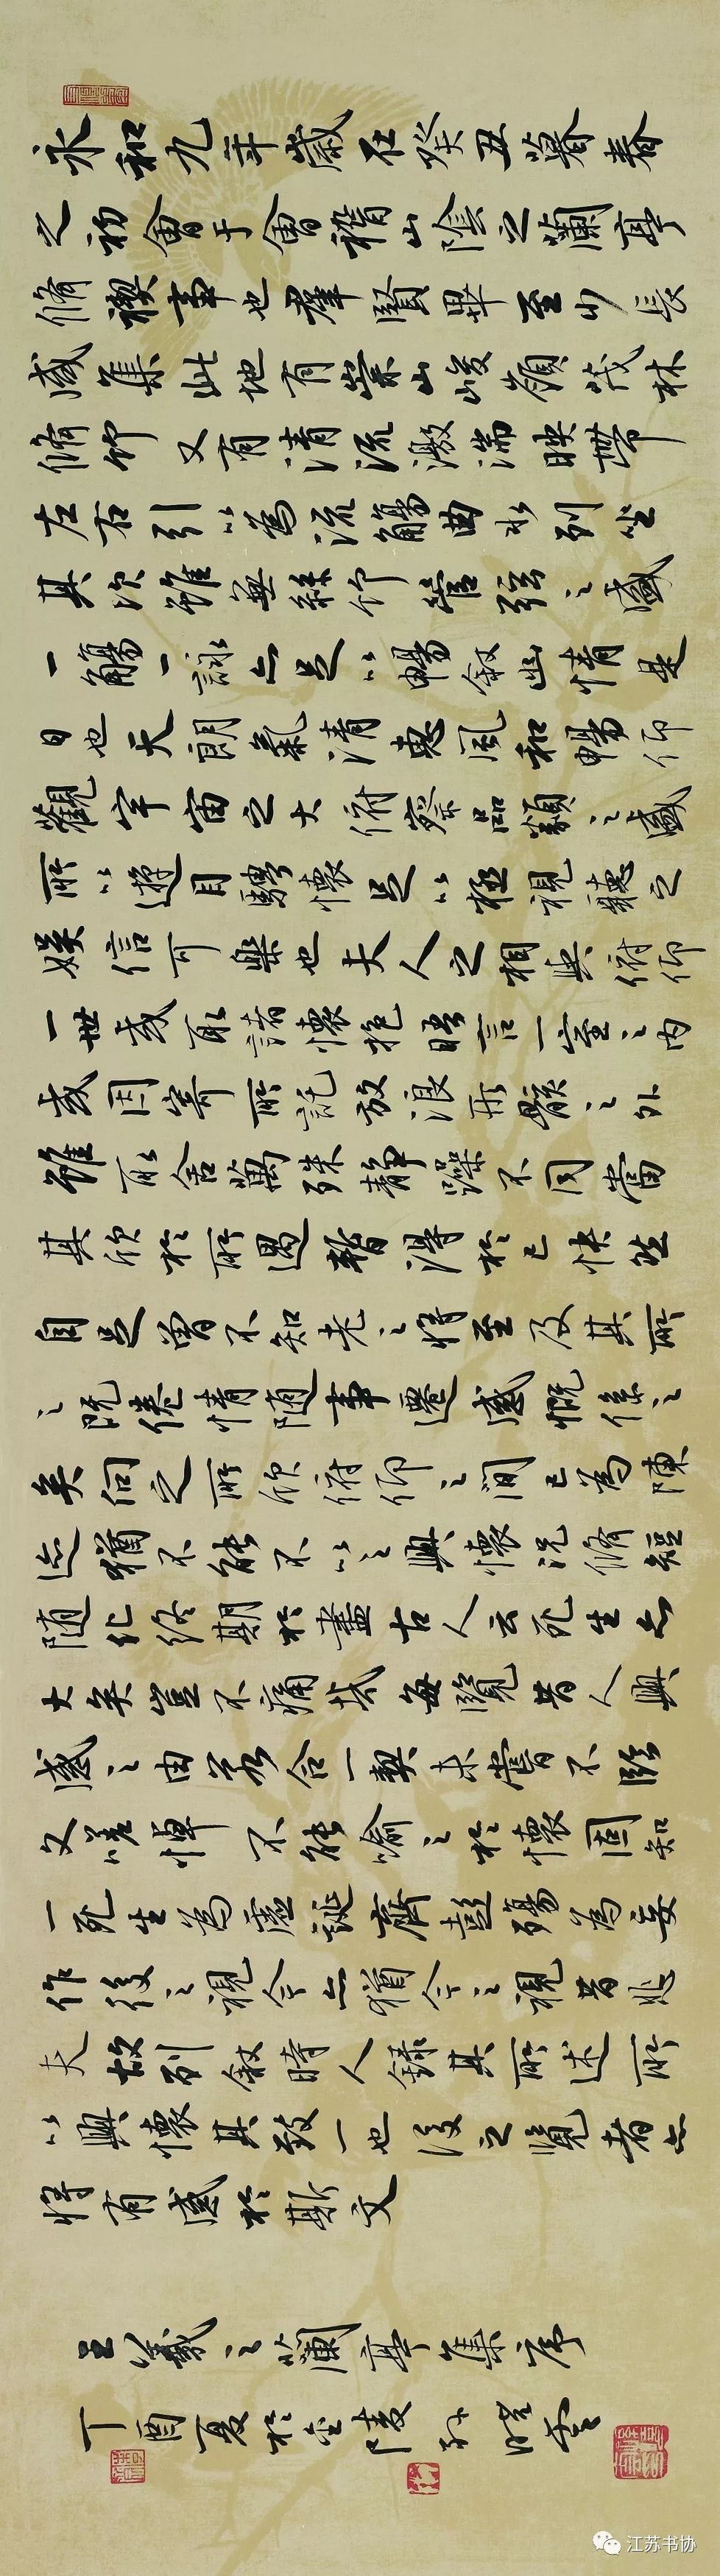 永和九年歲在癸丑暮春
之初會于會稽山陰之蘭亭
脩禊事也羣賢畢至少長
咸集此地有崇山峻嶺茂林
脩竹又有清流激湍映帶
左右引以為流觴曲水列坐
其次雖無絲竹管弦之盛
一觴一詠亦足以暢敘幽情是
日也天朗氣清惠風和暢仰
觀宇宙之大俯察品類之盛
所以遊目騁懷足以極視聽之
娛信可樂也夫人之相與俯仰
一世或取諸懷抱晤言一室之內
或因寄所託放浪形骸之外
雖取舍萬殊靜躁不同當
其欣於所遇暫得於己快然
自足曾不知老之將至及其所
之既倦情隨事遷感慨係之
矣向之所欣俯仰之間已為陳
迹猶不能不以之興懷況脩短
隨化終期於盡古人云死生亦
大矣豈不痛哉每覽昔人興
感之由若合一契未嘗不臨
文嗟悼不能喻之於懷固知
一死生為虛誕齊彭殤為妄
作後之視今亦猶今之視昔悲
夫故列敘時人錄其所述所
以興懷其致一也後之覽者亦
將有感於斯文
王羲之蘭亭集序
丁酉夏於金陵孫曉雲
江苏书协